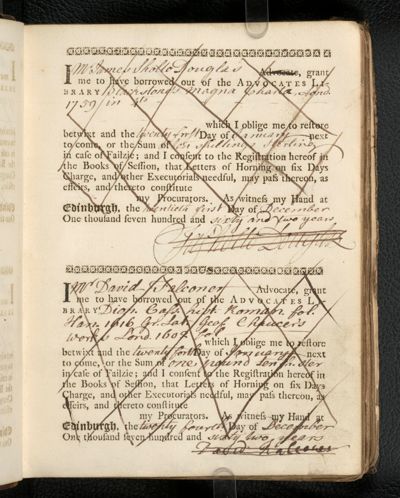 I Mr James Sholto Douglas Advocate, grant
me to have borrowed out of the ADVOCATES LI-
BRARY Blackstone's Magna Charta, Lond.
1759 in 4to
which I oblige me to restore
betwixt and the twenty first Day of January next
to come, or the Sum of Shillings Sterling
in case of Failzie; and I consent to the Registration hereof in
the Books of Session, that Letters of Horning on six Days
Charge, and other Executorials needful, may pass thereon, as
effeirs, and thereto constitute
my Procurators. As witness my Hand at
Edinburgh, the twentieth first Day of December
One thousand seven hundred and sixty and two years
I Mr David Falconer Advocate, grant
me to have borrowed out of the ADVOCATES LI-
BRARY Dion. Cass. hist. Roman. fol.
Han. 1616 Gr. Lat. Geof Chaucer's
works Lond. 1602 fol.
, which I oblige me to restore
betwixt and the twenty fourth Day of January next
to come, or the Sum of one pound Ster
in case of Failzie; and I consent to the Registration hereof in
the Books of Session, that Letters of Horning on six Days
Charge, and other Executorials needful, may pass thereon, as
effeirs, and thereto constitute
my Procurators. As witness my Hand at
Edinburgh, the twenty fourth Day of December
One thousand seven hundred and sixty two years
David Falconer